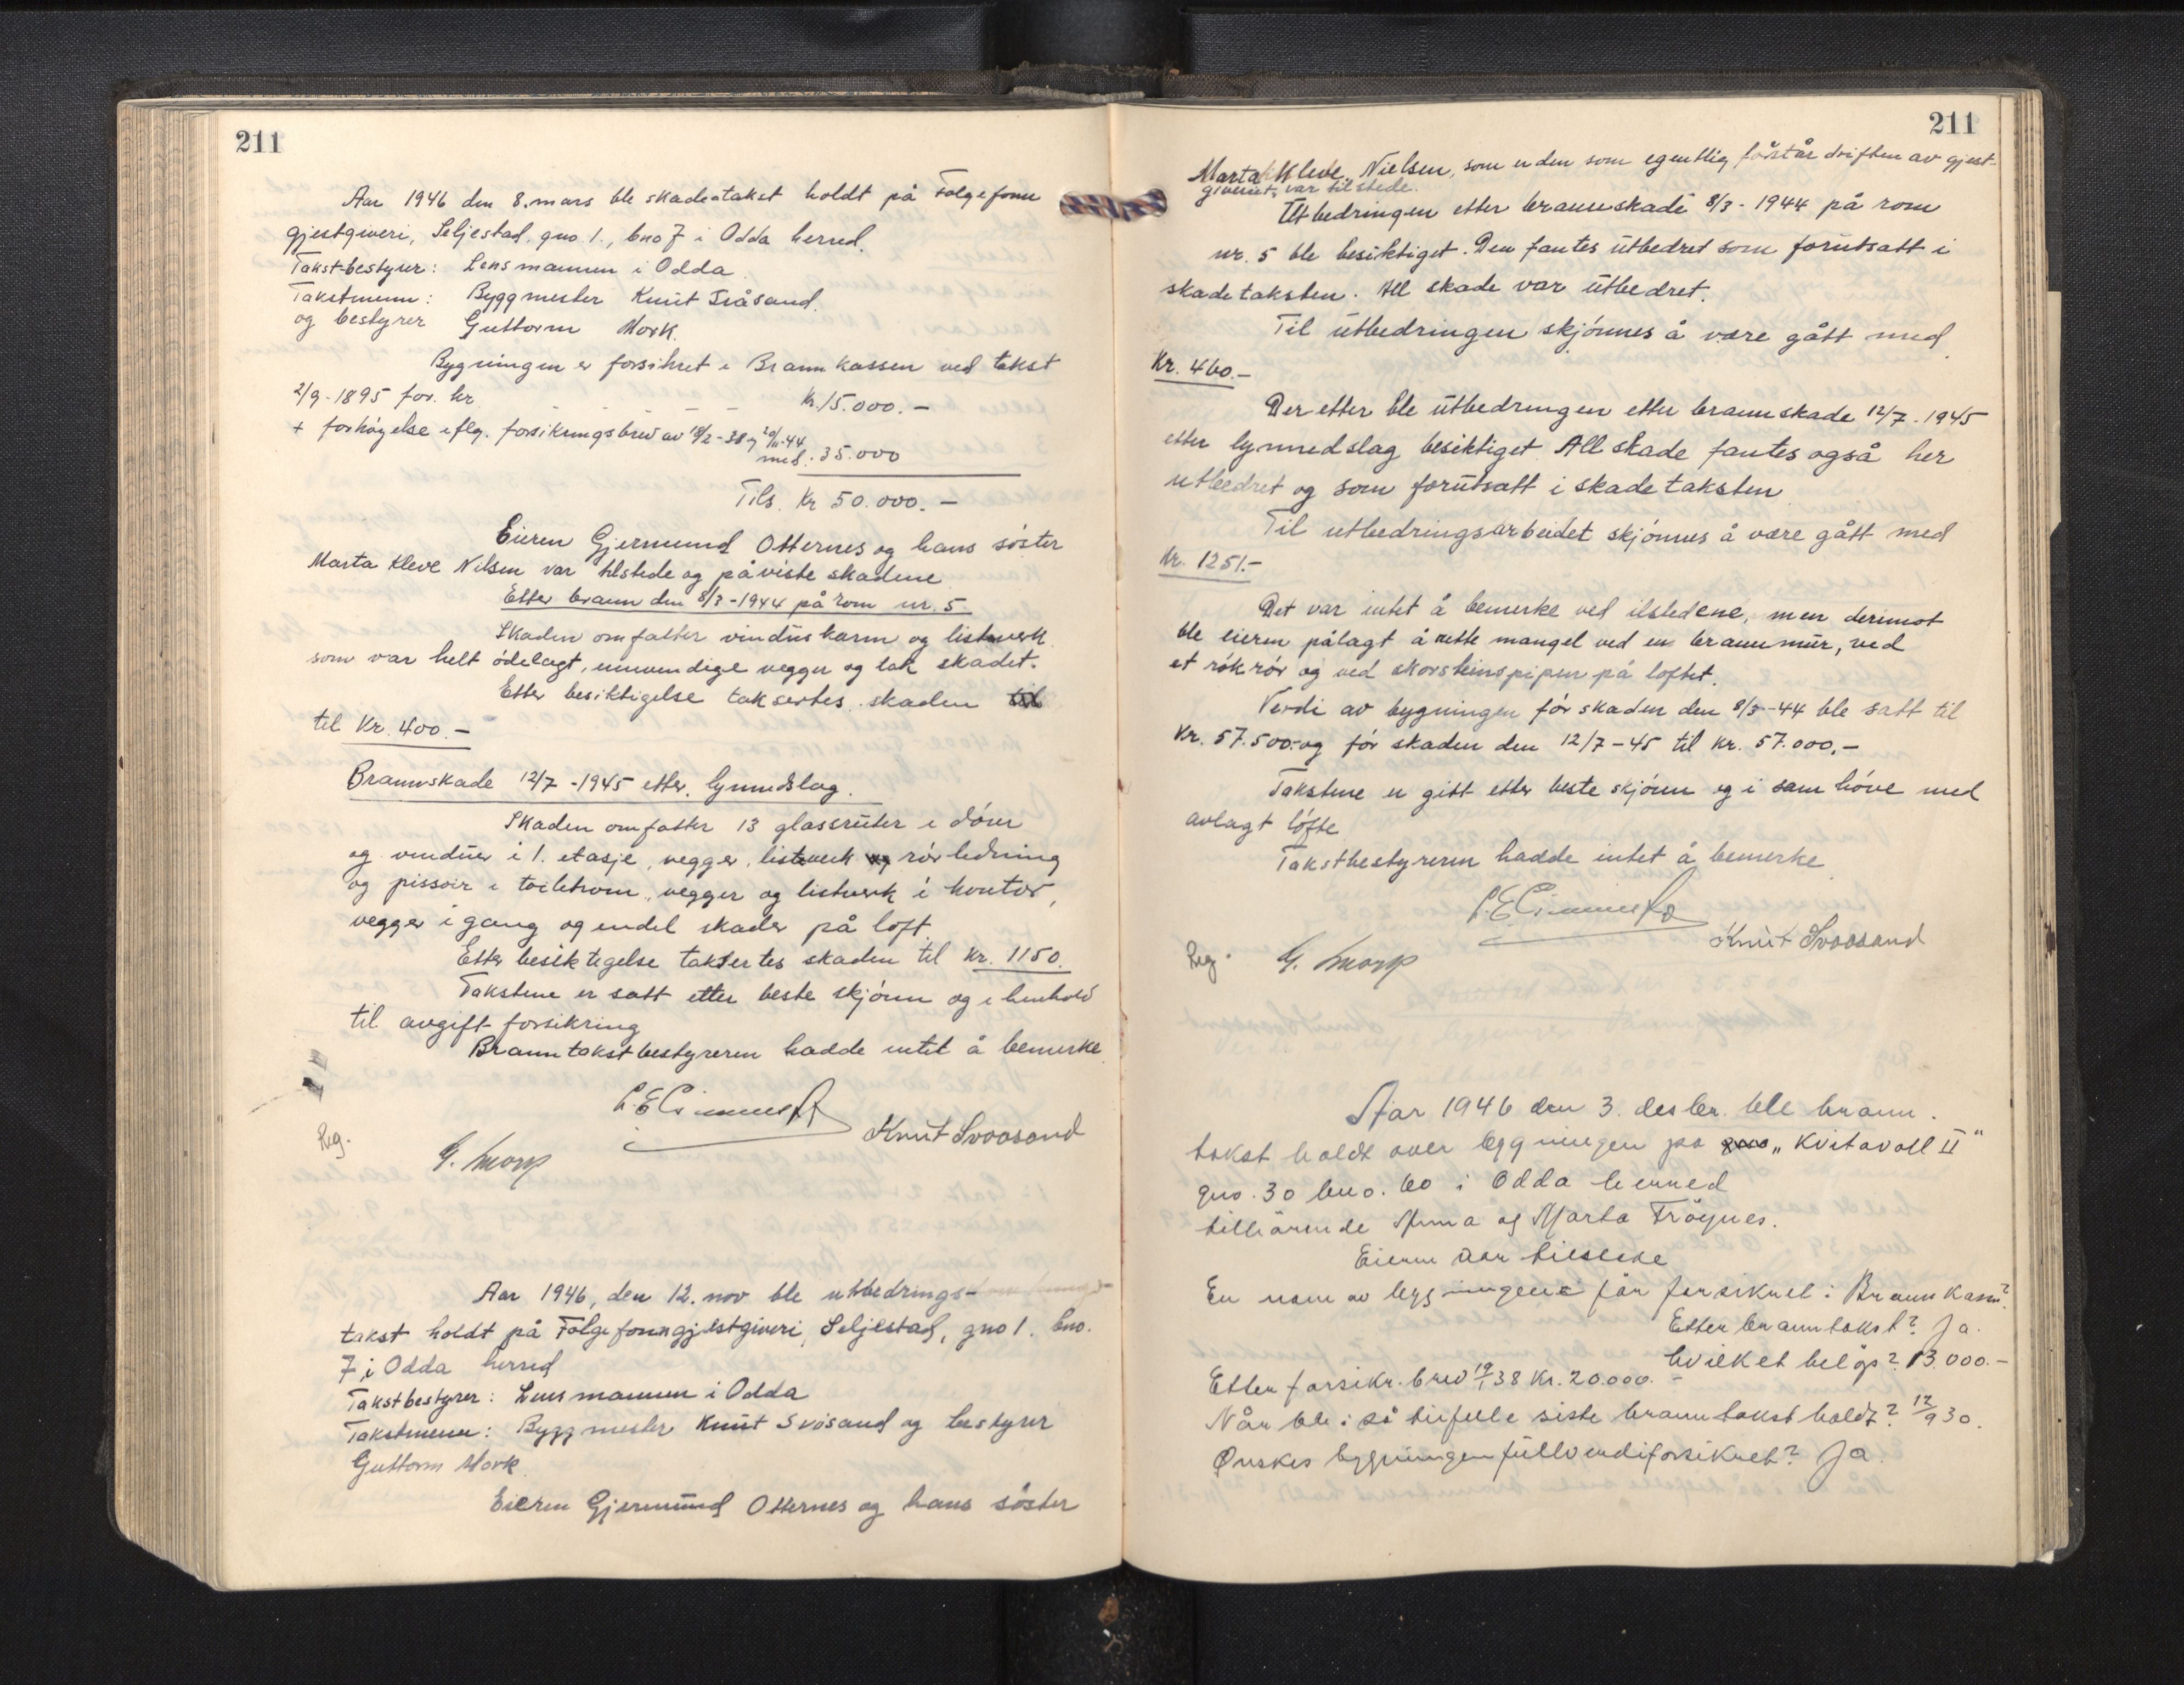 211
Aar 1946 den 8. mars ble skadetakst holdt på Folgefonn
gjestgiveri, Seljestad, gno 1., bno 7 i Odda herred.
Takstbestyrer: Lensmannen i Odda
Takstmenn: Byggmester Knut Svåsand.
og bestyrer Guttorm Mork.
Bygningen er forsikret i Brannkassen ved takst
2/9-1895 for kr. Kr. 15.000.-
+ forhøyelse iflg. forsikringsbrev av 18/2-38 og 20/11-44
med. 35.000
Tils. Kr 50.000.-
Eieren Gjermund Otternes og hans søster
Marta Kleve Nilsen var tilstede og påviste skadene
Etter brann den 8/3-1944 på rom nr. 5
Skaden omfatter vinduskarm og listverk
som var helt ødelagt, innvendige vegger og tak skadet.
Etter besiktigelse taksertes skaden til
til Kr. 400.-
Brannskade 12/7-1945 etter lynnedslag.
Skaden omfatter 13 glassruter i dører
og vinduer i 1. etasje, vegger, listverk og rørledning
og pissoir i toiletrom, vegger og listverk i kontor,
vegger i gang og endel skader på loft.
Etter besiktigelse taksertes skaden til kr. 1150.
Takstene er satt etter beste skjønn og i henhold
til avgift forsikring
Branntakstbestyreren hadde intet å bemerke.
Knut Svoosand
Reg. G. Mork
Aar 1946, den 12. nov ble utbedrings-
takst holdt på Folgefonn gjestgiveri, Seljestad, gno 1. bno.
7 i Odda herred
Takstbestyrer: Lensmannen i Odda
Takstmenn: Byggmester Knut Svåsand og bestyrer
Guttorm Mork
Eieren Gjermund Otternes og hans søster
211
Marta Kleve Nielsen, som er den som egentlig forstår driften av gjest-
giveriet, var tilstede.
Utbedringen etter brannskade 8/3-1944 på rom
nr. 5 ble besiktiget. Den fantes utbedret som forutsatt i
skadetaksten. All skade var utbedret.
Til utbedringen skjønnes å være gått med
Kr. 460.-
Der etter ble utbedringen etter brannskade 12/7.1945
etter lynnedslag besiktiget. All skade fantes også her
utbedret og som forutsatt i skadetaksten
Til utbedringsarbeidet skjønnes å være gått med
Kr. 1251.-
Det var intet å bemerke ved ilstedene, men derimot
ble eieren pålagt å rette mangel ved en brannmur, ved
et røkrør og ved skorsteinspipen på loftet.
Verdi av bygningen før skaden den 8/3-44 ble satt til
Kr. 57.500.- og før skaden den 12/7-45 til kr. 57.000,-
Takstene er gitt etter beste skjønn og i samhøve med
avlagt løfte
Takstbestyreren hadde intet å bemerke.
Knut Svoosand
Reg. G. Mork
Aar 1946 den 3. desbr. ble brann-
takst holdt over bygningen på gno „Kvitavoll II“
gno. 30 bno. 60 i Odda herred
tilhørende Anna og Marta Trøynes.
Eieren var tilstede
Er noen av bygningene før forsikret i Brannkassen?
Etter branntakst? Ja.
hvilket beløp? 13.000.-
Etter forsikr.brev 19/1 38 Kr. 20.000.-
Når ble i så tilfelle siste branntakst holdt? 12/9 30.
Ønskes bygningen fullverdiforsikret? Ja.